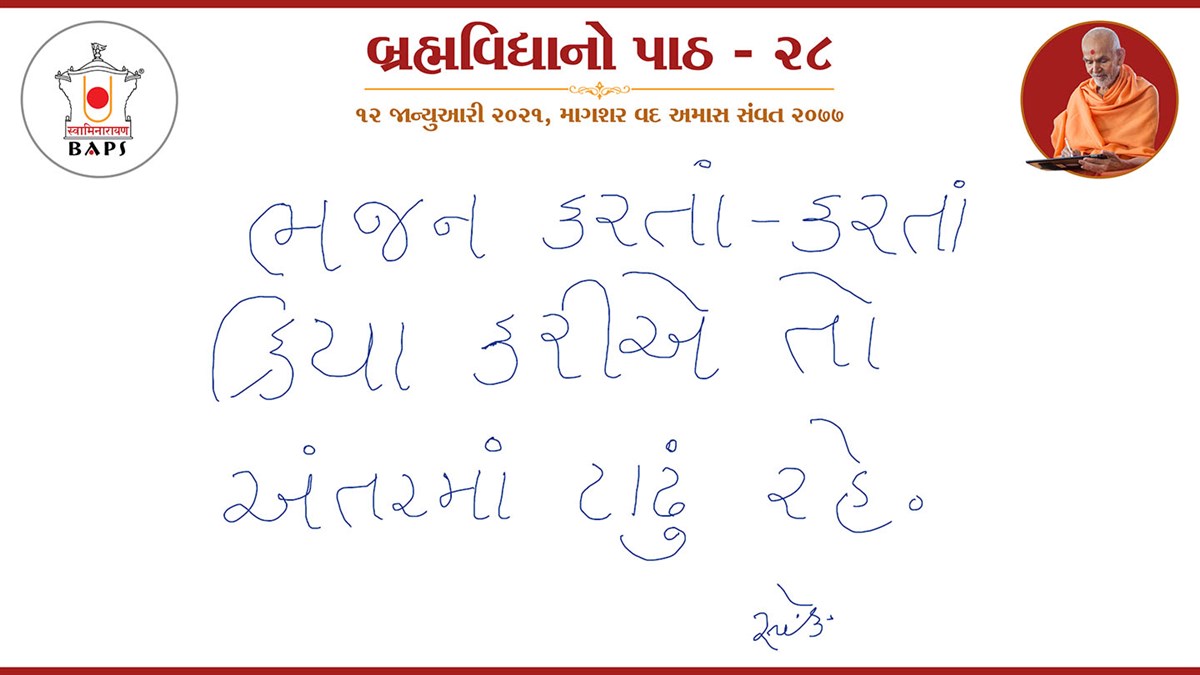 બ્રહ્મવિદ્યાનો પાઠ - ૨૮
૧૨ જાન્યુઆરી ૨૦૨૧, માગશર વદ અમાસ સંવત ૨૦૭૭
स्वामिनारायण
BAPS
ભજન કરતાં-કરતાં
ક્રિયા કરીએ તો
અંતરમાં ટાઢું રહે.